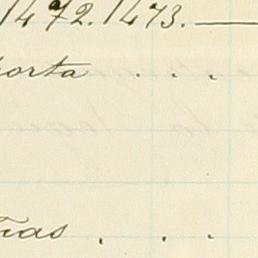 1472. 1473. —
orta . . .
rias . . .